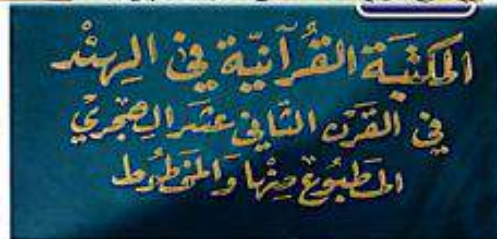 المكتبة القرآنية في الهند
في القرن الثاني عشر الهجري
المطبوع منها والمخطوط